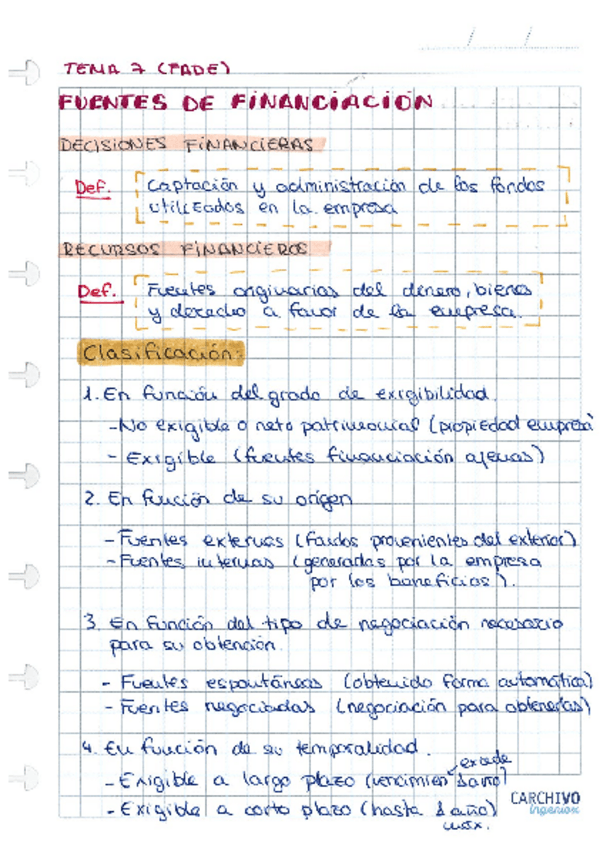 TEMA 7 (FADE)
FUENTES DE FINANCIACIÓN
DECISIONES FINANCIERAS
Def. Captación y administración de los fondos
utilizados en la empresa
RECURSOS FINANCIEROS
Def. Fuentes originarias del dinero, bienes
y derecho a favor de la empresa.
Clasificación:
1. En función del grado de exigibilidad.
- No exigible o neto patrimonial (propiedad empresa
- Exigible (fuentes financiación ajenas)
2. En función de su origen
- Fuentes externas (fondos provenientes del exterior)
- Fuentes internas (generadas por la empresa
por los beneficios).
3. En función del tipo de negociación necesario
para su obtención.
- Fuentes espontáneas (obtenido forma automática)
- Fuentes negociadas (negociación para obtenerlas)
4. En función de su temporalidad.
excede
- Exigible a largo plazo (vencimien 1 año)
- Exigible a corto plazo (hasta 1 año)
máx.
CARCHIVO
ingenios